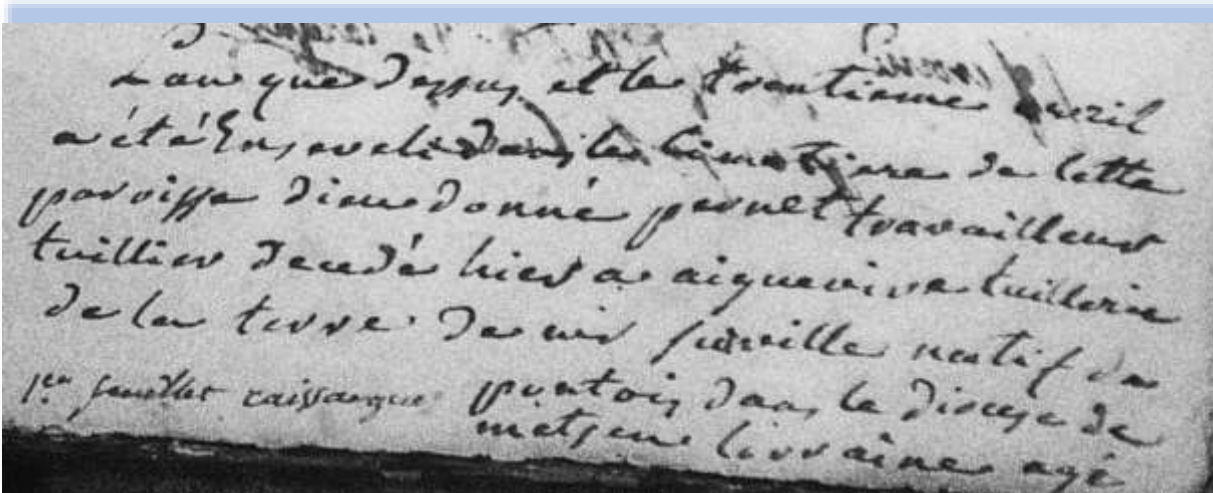 L'an que dessus et le trentieme avril
a été Enseveli dans le Cimetiere de Cette
paroisse dieudonné pernet travailleur
tuillier decedé hier a aiguevive tuillerie
de la terre de mr surville natif de
pontois dans le diocese de
1er feuillet caissargue
mets en lorraine agé